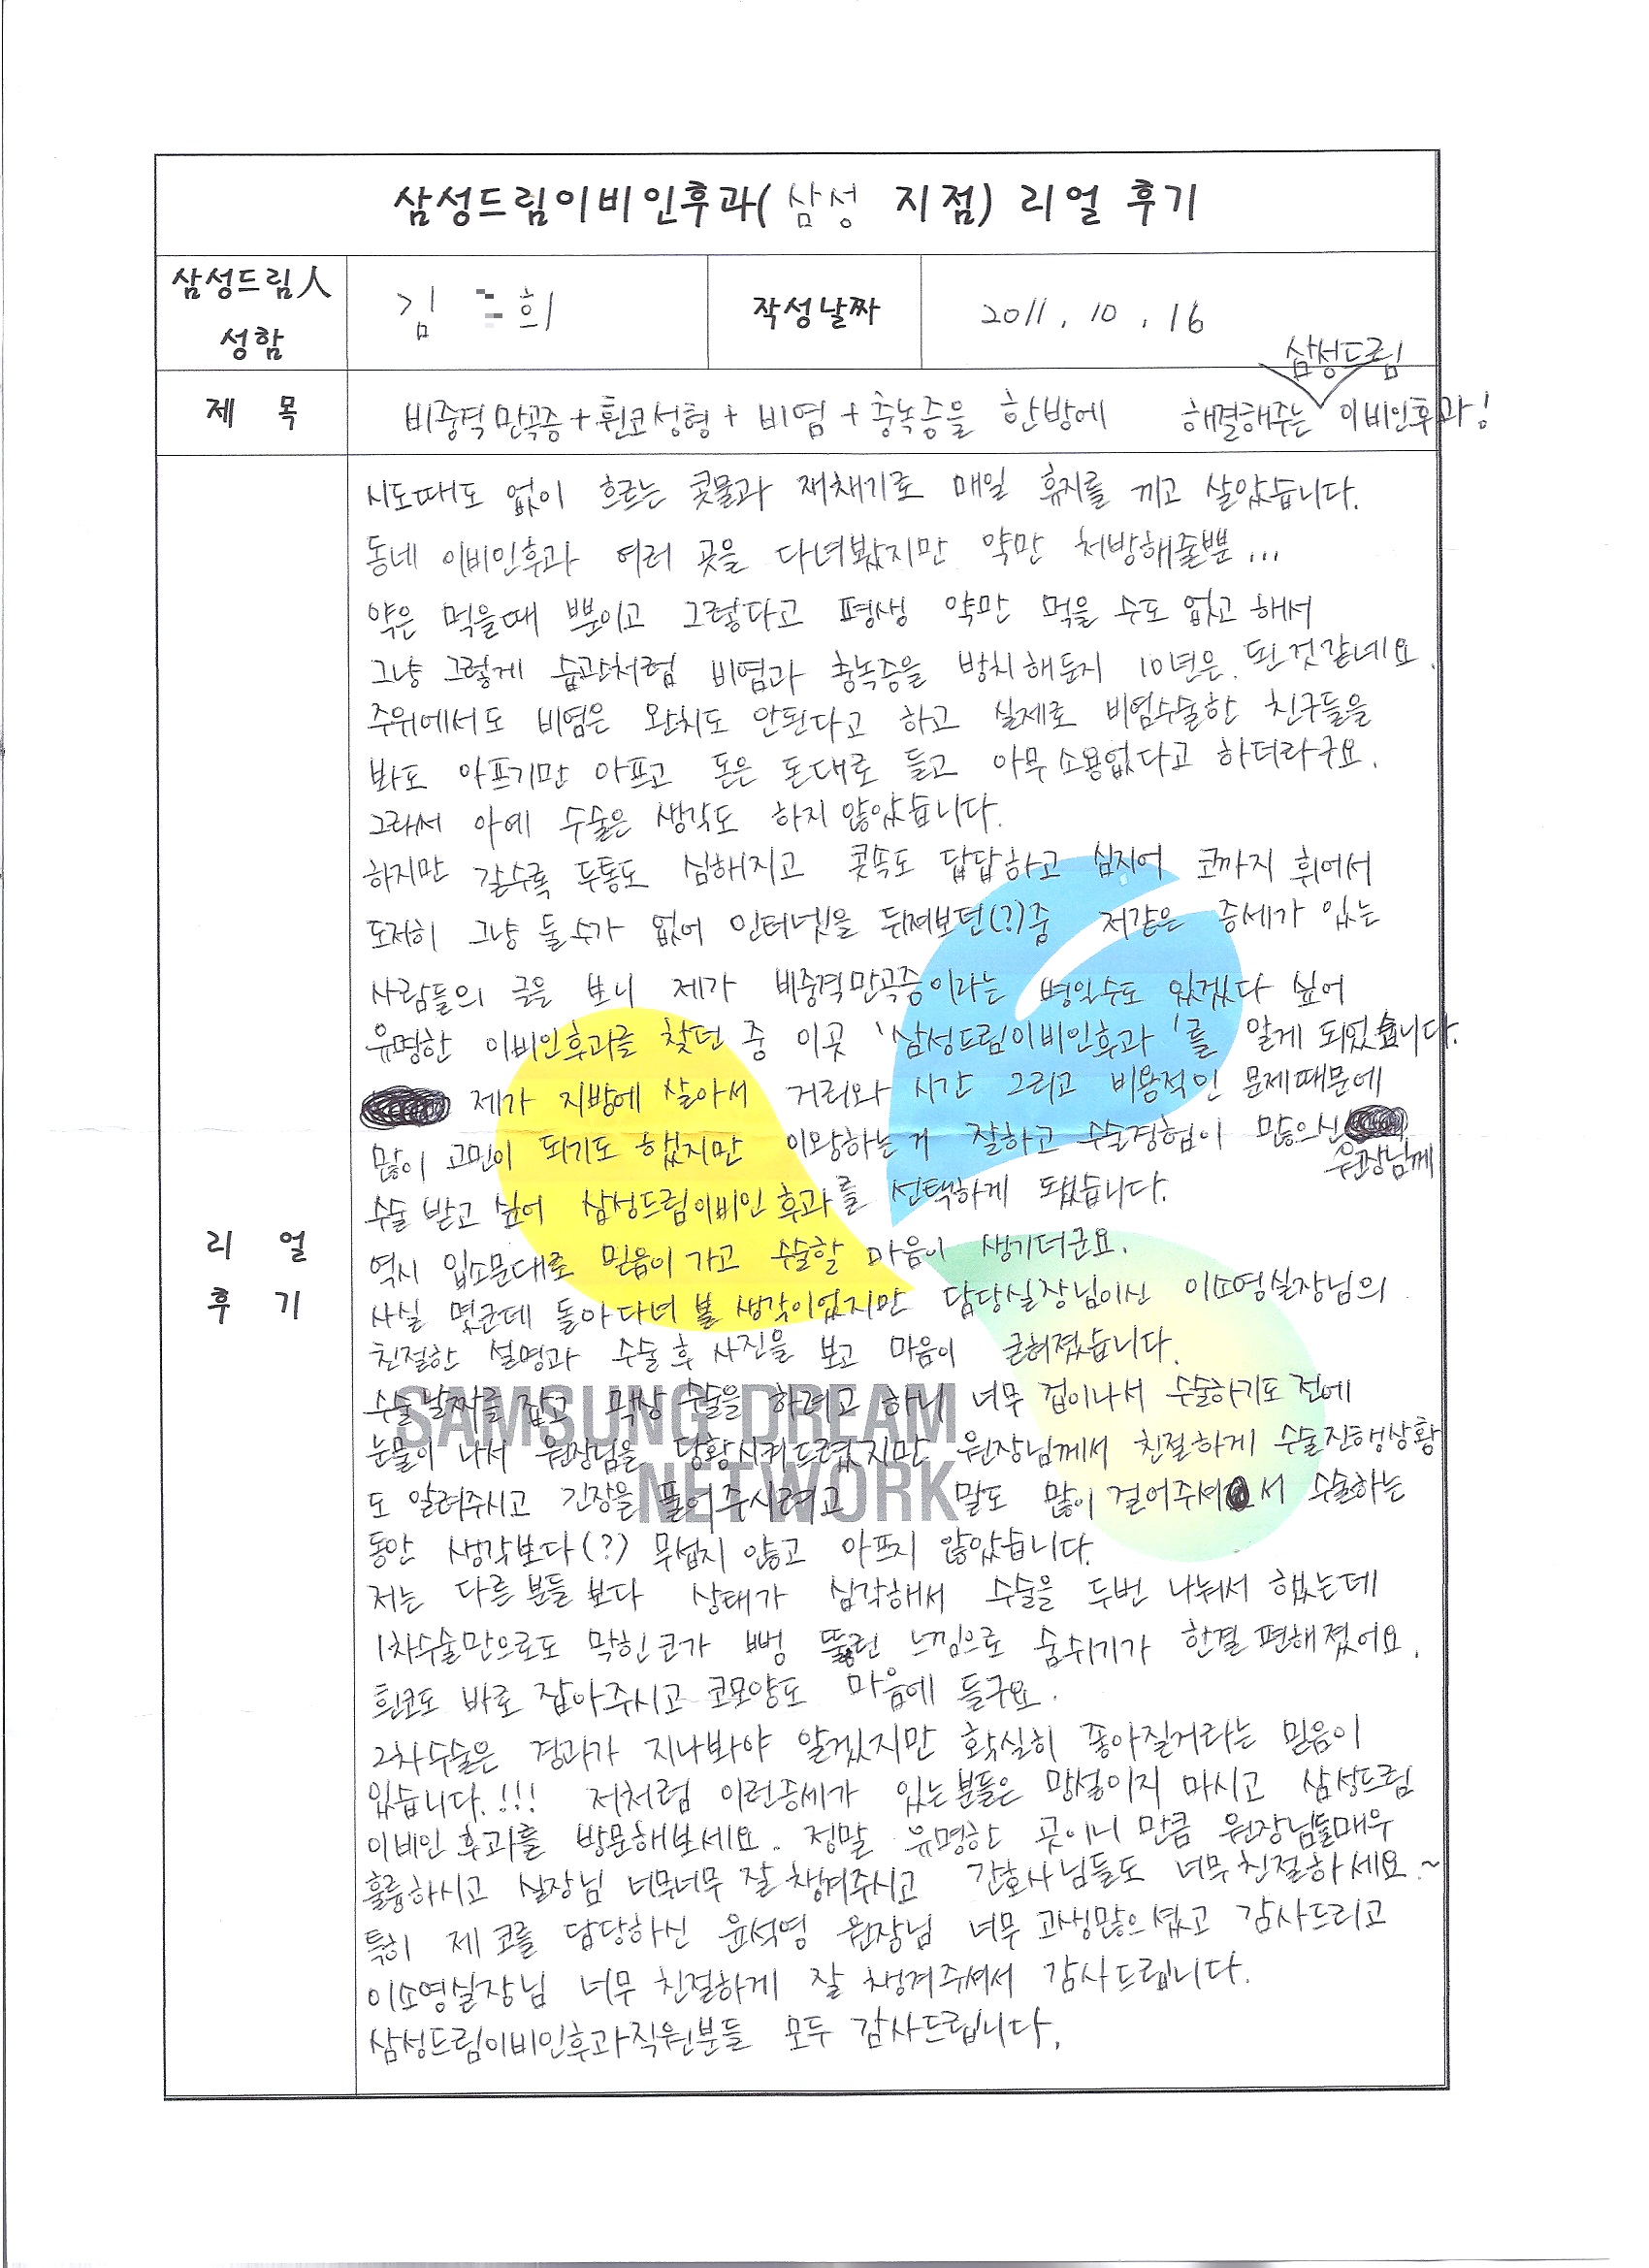 삼성드림이비인후과(삼성 지점) 리얼 후기
삼성드림人
성함
김 희
작성날짜
2011. 10. 16
제 목
비중격만곡증+휜코성형+비염+충녹증을 한방에 해결해주는 삼성드림 이비인후과!
리 얼
후 기
시도때도 없이 흐르는 콧물과 재채기로 매일 휴지를 끼고 살았습니다.
동네 이비인후과 여러 곳을 다녀봤지만 약만 처방해줄뿐...
약은 먹을때 뿐이고 그렇다고 평생 약만 먹을 수도 없고 해서
그냥 그렇게 습관처럼 비염과 충녹증을 방치해둔지 10년은 된것같네요.
주위에서도 비염은 완치도 안된다고 하고 실제로 비염수술한 친구들을
봐도 아프기만 아프고 돈은 돈대로 들고 아무 소용없다고 하더라구요.
그래서 아예 수술은 생각도 하지 않았습니다.
하지만 갈수록 두통도 심해지고 콧속도 답답하고 심지어 코까지 휘어서
도저히 그냥 둘수가 없어 인터넷을 뒤져보던(?)중 저같은 증세가 있는
사람들의 글을 보니 제가 비중격만곡증이라는 병일수도 있겠다 싶어
유명한 이비인후과를 찾던 중 이곳 '삼성드림이비인후과'를 알게 되었습니다.
제가 지방에 살아서 거리와 시간 그리고 비용적인 문제때문에
많이 고민이 되기도 했지만 이왕하는거 잘하고 수술경험이 많으신 원장님께
수술 받고 싶어 삼성드림이비인후과를 선택하게 됐습니다.
역시 입소문대로 믿음이 가고 수술할 마음이 생기더군요.
사실 몇군데 돌아다녀 볼 생각이었지만 담당실장님이신 이소영실장님의
친절한 설명과 수술 후 사진을 보고 마음이 굳혀졌습니다.
수술날짜를 잡고 막상 수술을 하려고 하니 너무 겁이나서 수술하기도 전에
눈물이 나서 원장님을 당황시켜드렸지만 원장님께서 친절하게 수술진행상황
도 알려주시고 긴장을 풀어주시려고 말도 많이 걸어주셔서 수술하는
동안 생각보다(?) 무섭지 않고 아프지 않았습니다.
저는 다른분들 보다 상태가 심각해서 수술을 두번 나눠서 했는데
1차수술만으로도 막힌코가 뻥 뚫린 느낌으로 숨쉬기가 한결 편해졌어요.
휜코도 바로 잡아주시고 코모양도 마음에 들구요.
2차수술은 경과가 지나봐야 알겠지만 확실히 좋아질거라는 믿음이
있습니다.!!! 저처럼 이런증세가 있는분들은 망설이지 마시고 삼성드림
이비인후과를 방문해보세요. 정말 유명한 곳이니 만큼 원장님들매우
훌륭하시고 실장님 너무너무 잘 챙겨주시고 간호사님들도 너무친절하세요.~
특히 제 코를 담당하신 윤석영 원장님 너무 고생많으셨고 감사드리고
이소영실장님 너무 친절하게 잘 챙겨주셔서 감사드립니다.
삼성드림이비인후과직원분들 모두 감사드립니다.
SAMSUNG DREAM
NETWORK